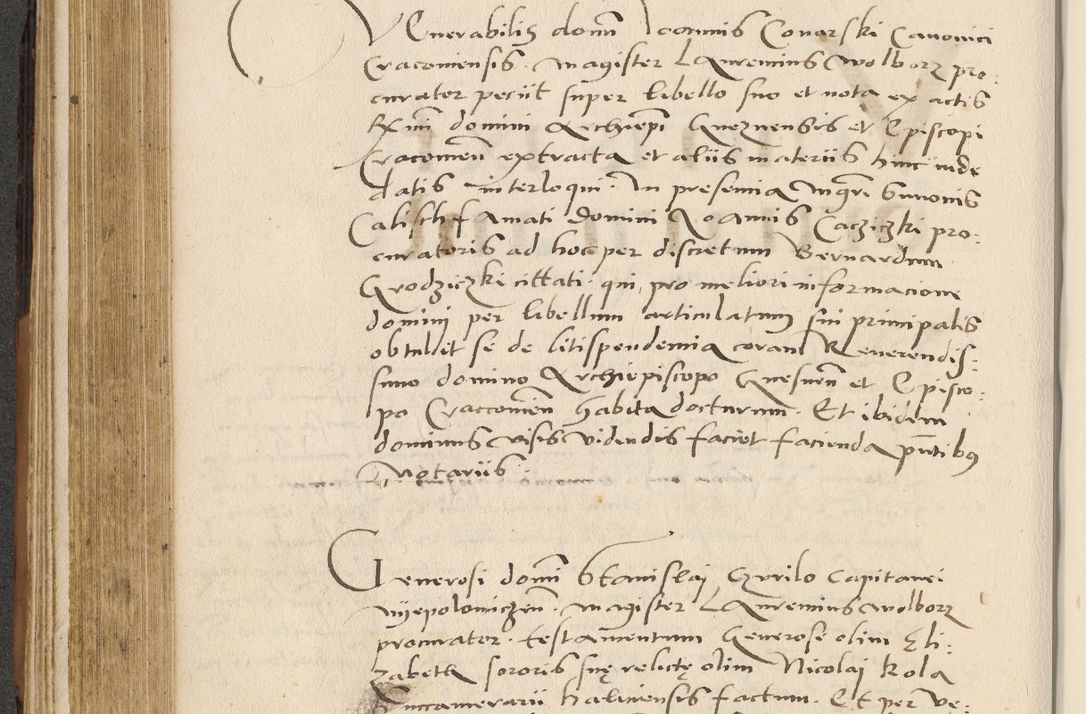 Venerabilis domini Ioannis Conarski Canonici
Cracoviensis. Magister Laurencius Wolborz pro:
curator peciit super libello suo et nota ex actis
Rmi domini Archiepi Gneznensis et Episcopi
Cracovien extracta et aliis materiis hinc inde
datis interloqui. In presencia Mgri Symonis
Calisch famati domini Ioannis Cacziczki pro:
curatoris ad hoc per discretum Bernardum
Grodziczki cittati. qui pro meliori informacione
domini per libellum articulatum sui principalis
obtulit se de litispendencia coram Reverendis:
simo domino Archiepiscopo Gnesnen et Episco:
po Craccovien habita docturum. Et ibidem
dominus visis videndis faciet facienda pntibus
Notariis.
Generosi domini Stanislai Cyrilo Capitanei
Nyepolomiczen. Magister Laurencius Wolborz
procurator. testamentum Generose olim Eli:
zabeth sororis suę relictę olim Nicolai Kola
Succamerarii halicensis factum. Et per Ve: